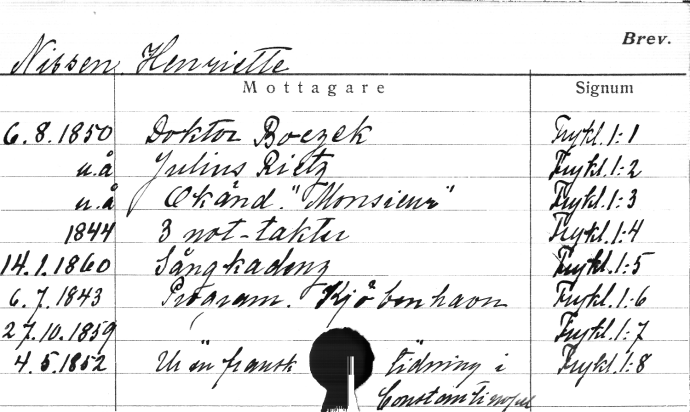 Brev.
Nissen, Henriette
Mottagare Signum
6.8.1850 Doktor Boczek Frykl. 1:1
u.å Julius Rietz Frykl. 1:2
u.å Okänd. "Monsieur" Frykl. 1:3
1844 3 not-takter Frykl. 1:4
14.1.1860 Sångkadenz Frykl. 1:5
6.7.1843 Program. Kjöbenhavn Frykl. 1:6
27.10.1859 Frykl. 1:7
4.5.1852 Ur en fransk tidning i Frykl. 1:8
Constantinopel